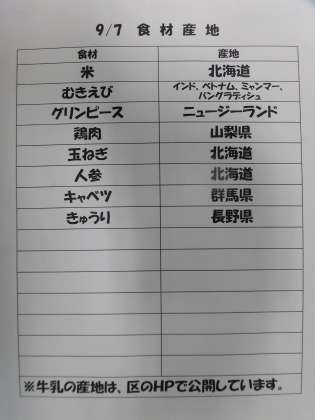 9/7 食材産地
食材 産地
米 北海道
むきえび インド、ベトナム、ミャンマー、
バングラディシュ
グリンピース ニュージーランド
鶏肉 山梨県
玉ねぎ 北海道
人参 北海道
キャベツ 群馬県
きゅうり 長野県
※牛乳の産地は、区のHPで公開しています。